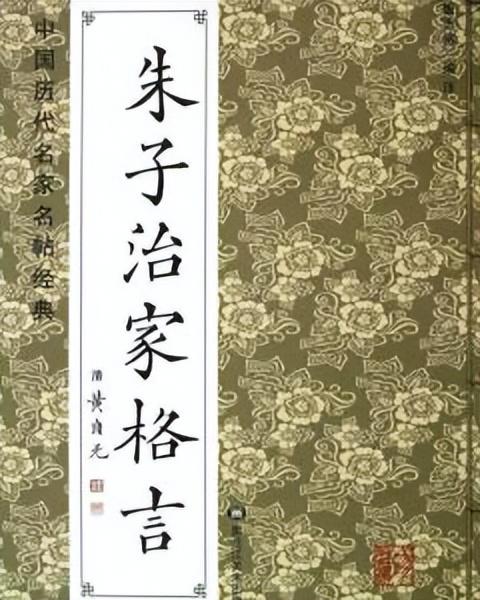 中国历代名家名帖经典
朱子治家格言
清 黄自元